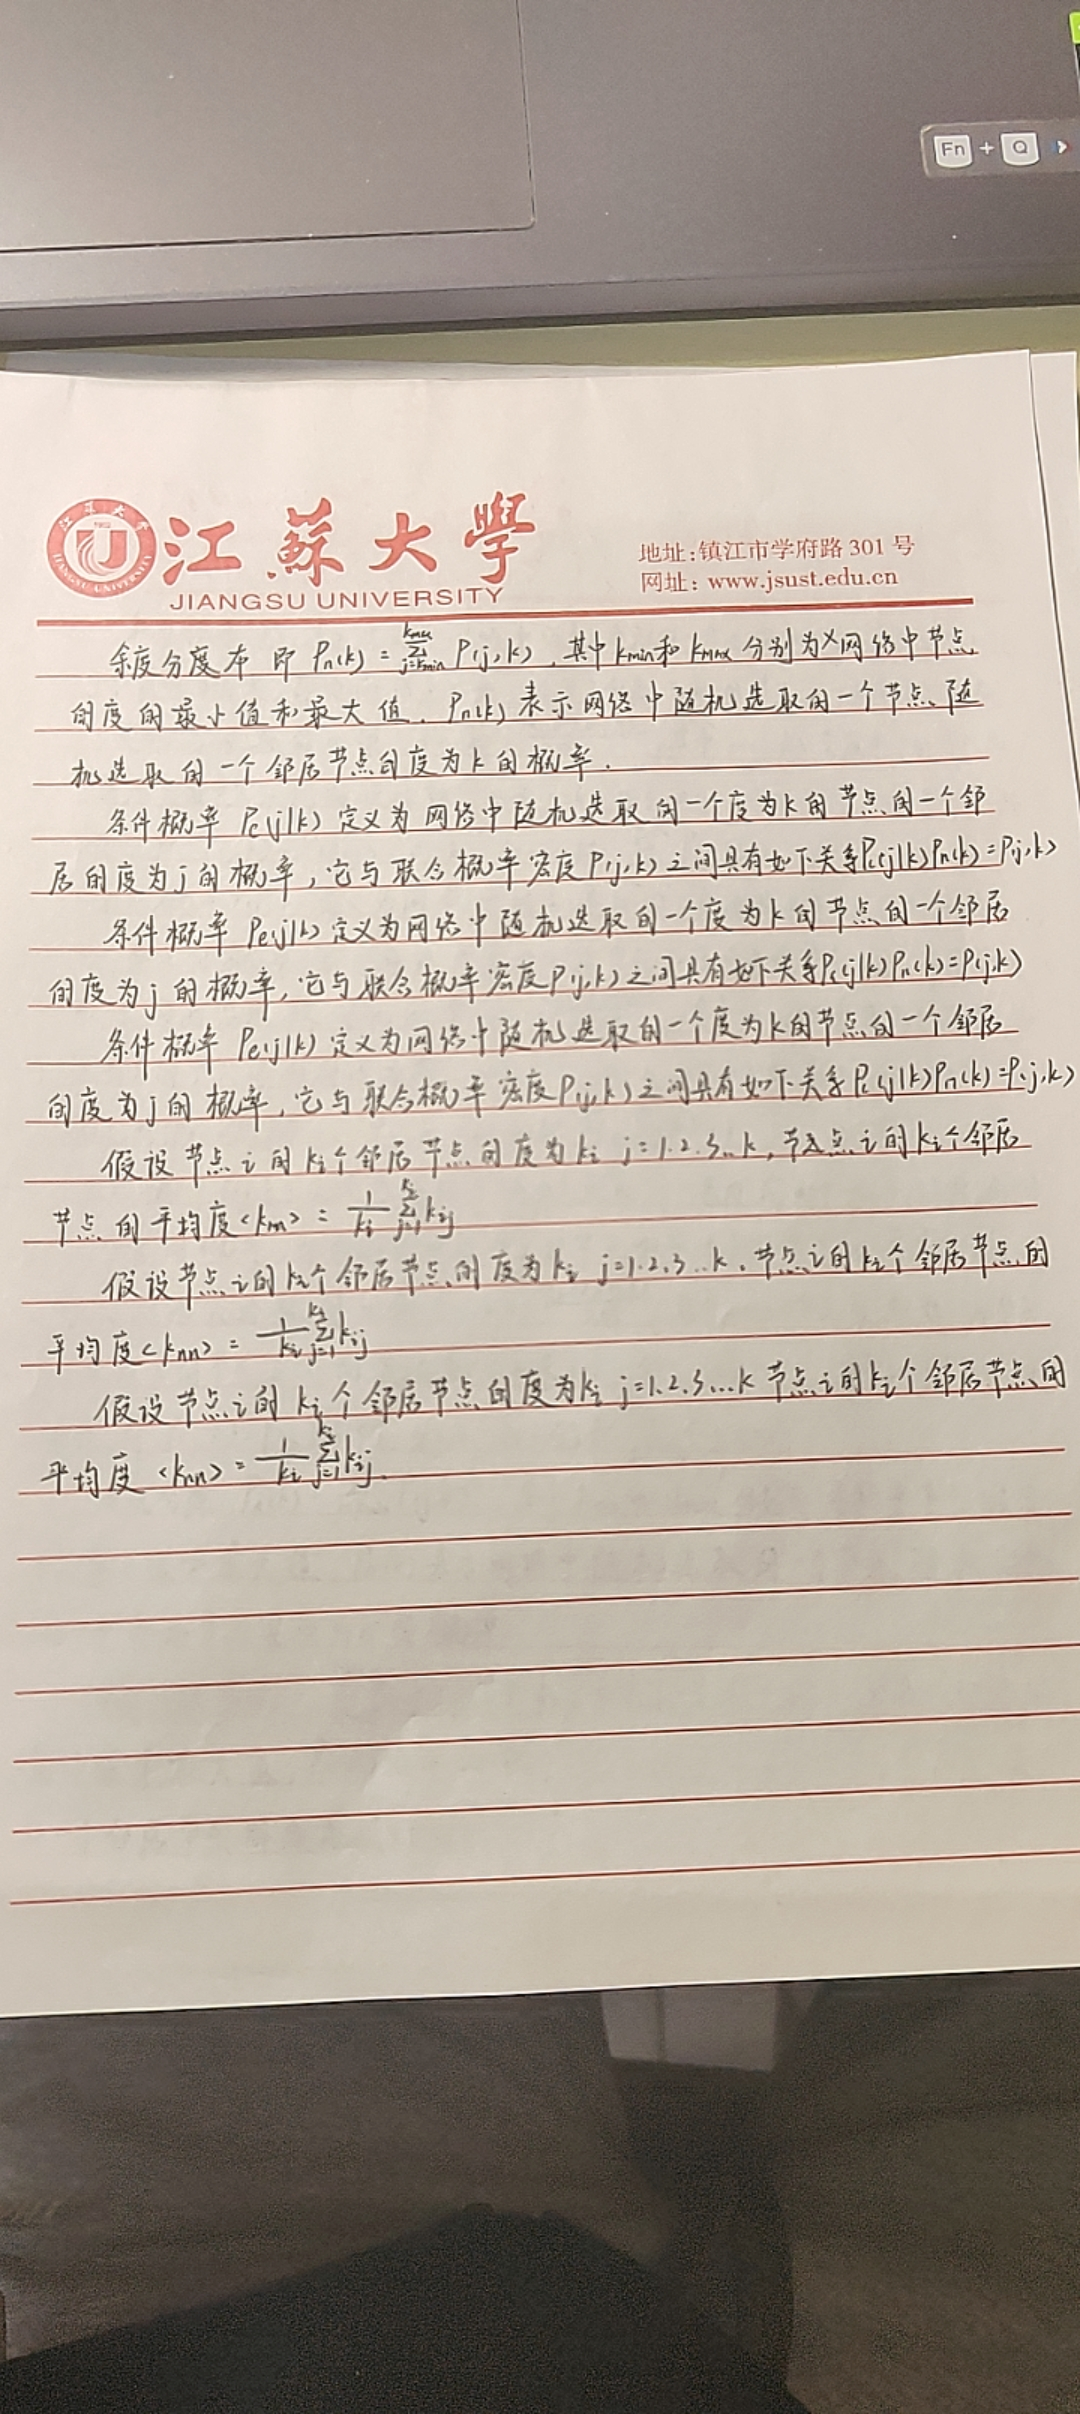 Fn + Q
江蘇大學
JIANGSU UNIVERSITY
地址:镇江市学府路 301 号
网址: www.jsust.edu.cn
余度分度布 即 Pn(k) = Σ_{j=kmin}^{kmax} P(j,k),其中 kmin和 kmax 分别为X网络中节点
的度的最小值和最大值. Pn(k) 表示网络中随机选取的一个节点随
机选取的一个邻居节点的度为k的概率.
条件概率 Pc(j|k) 定义为网络中随机选取的一个度为k的节点的一个邻
居的度为j的概率,它与联合概率密度P(j,k)之间具有如下关系Pc(j|k)Pn(k)=P(j,k)
条件概率 Pc(j|k) 定义为网络中随机选取的一个度为k的节点的一个邻居
的度为j的概率,它与联合概率密度P(j,k)之间具有如下关系Pc(j|k)Pn(k)=P(j,k)
条件概率 Pc(j|k) 定义为网络中随机选取的一个度为k的节点的一个邻居
的度为j的概率,它与联合概率密度P(j,k)之间具有如下关系Pc(j|k)Pn(k)=P(j,k)
假设节点i的ki个邻居节点的度为ki j=1.2.3..k,节点i的ki个邻居
节点的平均度<knn> = 1/ki Σ_{j=1}^{ki} kij
假设节点i的ki个邻居节点的度为ki j=1.2.3..k.节点i的ki个邻居节点的
平均度<knn> = 1/ki Σ_{j=1}^{ki} kij
假设节点i的ki个邻居节点的度为ki j=1.2.3...k 节点i的ki个邻居节点的
平均度 <knn> = 1/ki Σ_{j=1}^{ki} kij.